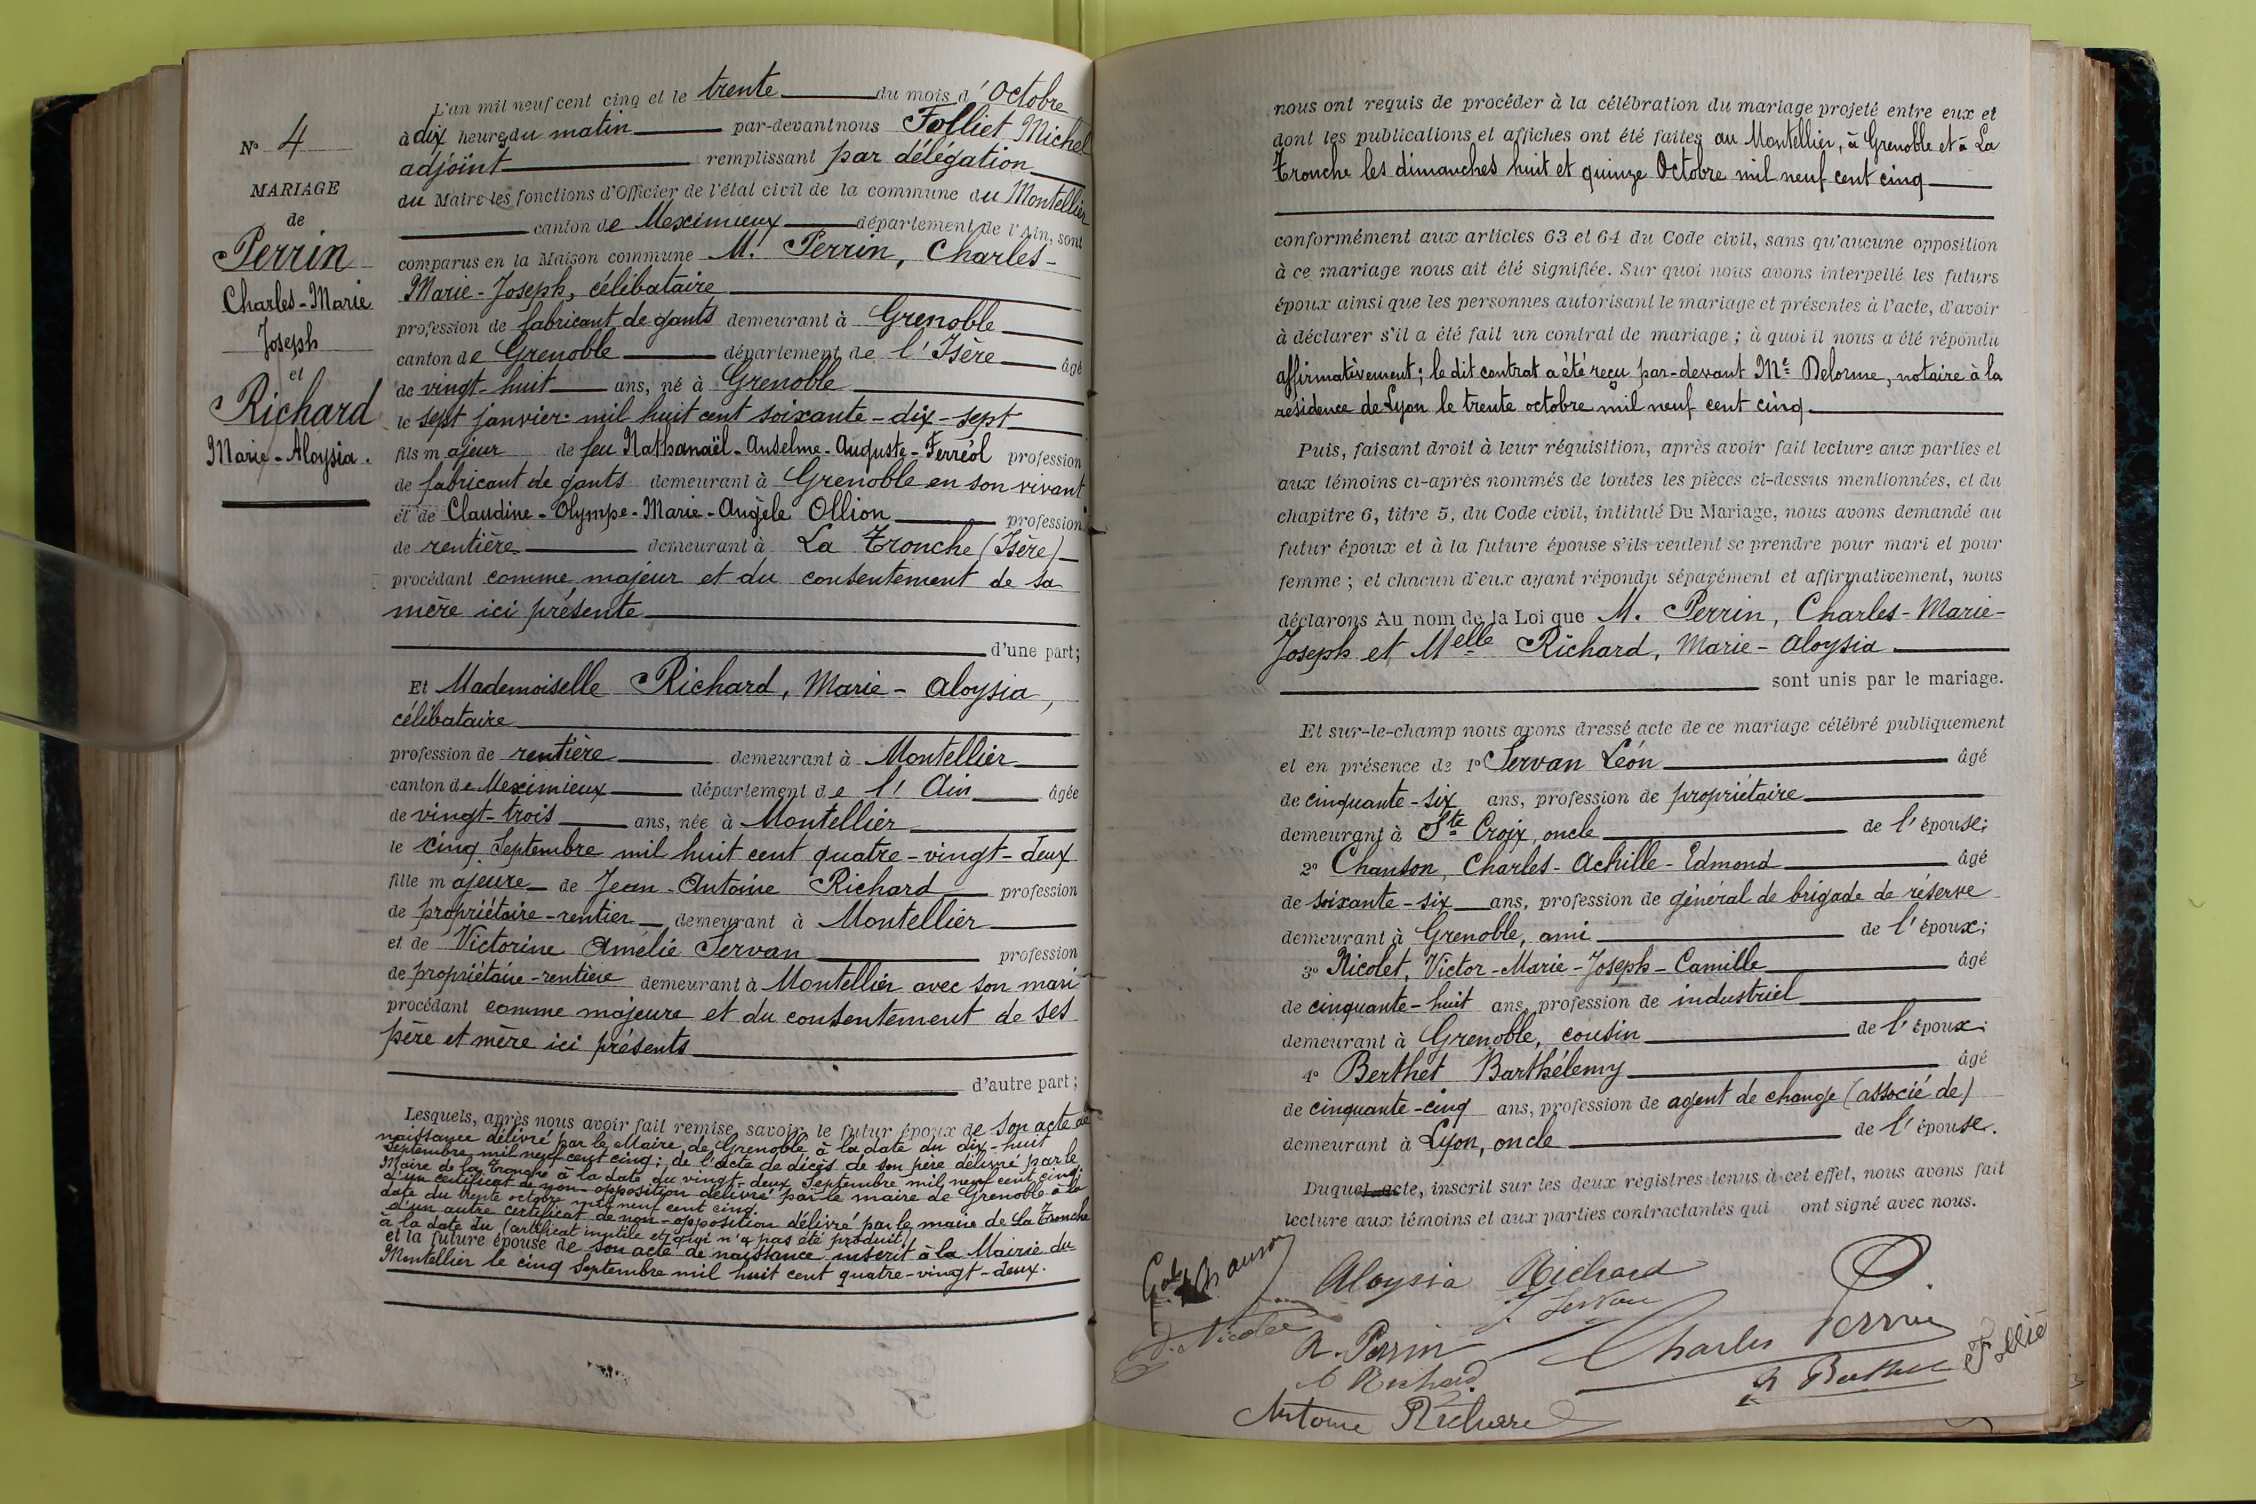 N° 4
MARIAGE
de
Perrin
Charles-Marie
Joseph
et
Richard
Marie-Aloysia.
L'an mil neuf cent cinq et le trente du mois d'Octobre
à dix heures du matin par-devant nous Folliet Michel
adjoint remplissant par délégation
du Maire les fonctions d'Officier de l'état civil de la commune du Montellier
canton de Meximieux département de l'Ain, sont
comparus en la Maison commune M. Perrin, Charles-
Marie-Joseph, célibataire
profession de fabricant de gants demeurant à Grenoble
canton de Grenoble département de l'Isère âgé
de vingt-huit ans, né à Grenoble
le sept janvier mil huit cent soixante-dix-sept
fils majeur de feu Nathanaël-Anselme-Auguste-Ferréol profession
de fabricant de gants demeurant à Grenoble en son vivant
et de Claudine-Olympe-Marie-Angèle Ollion profession
de rentière demeurant à La Tronche (Isère)
procédant comme majeur et du consentement de sa
mère ici présente
d'une part;
Et Mademoiselle Richard, Marie-Aloysia,
célibataire
profession de rentière demeurant à Montellier
canton de Meximieux département de l'Ain âgée
de vingt-trois ans, née à Montellier
le cinq Septembre mil huit cent quatre-vingt-deux
fille majeure de Jean-Antoine Richard profession
de propriétaire-rentier demeurant à Montellier
et de Victorine Amélie Servan profession
de propriétaire-rentière demeurant à Montellier avec son mari
procédant comme majeure et du consentement de ses
père et mère ici présents
d'autre part;
Lesquels, après nous avoir fait remise, savoir: le futur époux de son acte de
naissance délivré par le Maire de Grenoble à la date du dix-huit
Septembre mil neuf cent cinq; de l'acte de décès de son père délivré par le
Maire de la Tronche à la date du vingt-deux Septembre mil neuf cent cinq;
d'un certificat de non-opposition délivré par le maire de Grenoble à la
date du trente octobre mil neuf cent cinq.
d'un autre certificat de non-opposition délivré par le maire de La Tronche
à la date du (certificat inutile et qui n'a pas été produit)
et la future épouse de son acte de naissance inscrit à la Mairie du
Montellier le cinq septembre mil huit cent quatre-vingt-deux.
nous ont requis de procéder à la célébration du mariage projeté entre eux et
dont les publications et affiches ont été faites au Montellier, à Grenoble et à La
Tronche les dimanches huit et quinze Octobre mil neuf cent cinq
conformément aux articles 63 et 64 du Code civil, sans qu'aucune opposition
à ce mariage nous ait été signifiée. Sur quoi nous avons interpellé les futurs
époux ainsi que les personnes autorisant le mariage et présentes à l'acte, d'avoir
à déclarer s'il a été fait un contrat de mariage; à quoi il nous a été répondu
affirmativement; le dit contrat a été reçu par-devant Me Delorme, notaire à la
résidence de Lyon le trente octobre mil neuf cent cinq.
Puis, faisant droit à leur réquisition, après avoir fait lecture aux parties et
aux témoins ci-après nommés de toutes les pièces ci-dessus mentionnées, et du
chapitre 6, titre 5, du Code civil, intitulé Du Mariage, nous avons demandé au
futur époux et à la future épouse s'ils veulent se prendre pour mari et pour
femme; et chacun d'eux ayant répondu séparément et affirmativement, nous
déclarons Au nom de la Loi que M. Perrin, Charles-Marie-
Joseph et Melle Richard, Marie-Aloysia
sont unis par le mariage.
Et sur-le-champ nous avons dressé acte de ce mariage célébré publiquement
et en présence de 1° Servan Léon âgé
de cinquante-six ans, profession de propriétaire
demeurant à Ste Croix, oncle de l'épouse;
2° Chanson, Charles-Achille-Edmond âgé
de soixante-six ans, profession de général de brigade de réserve
demeurant à Grenoble, ami de l'époux;
3° Nicolet, Victor-Marie-Joseph-Camille âgé
de cinquante-huit ans, profession de industriel
demeurant à Grenoble, cousin de l'époux;
4° Berthet Barthélemy âgé
de cinquante-cinq ans, profession de agent de change (associé de)
demeurant à Lyon, oncle de l'épouse.
Duquel acte, inscrit sur les deux registres tenus à cet effet, nous avons fait
lecture aux témoins et aux parties contractantes qui ont signé avec nous.
Gal Chanson
Aloysia Richard
Servan
V. Nicolet
Charles Perrin
Perrin
Richard
Berthet
Folliet
Antoine Richard